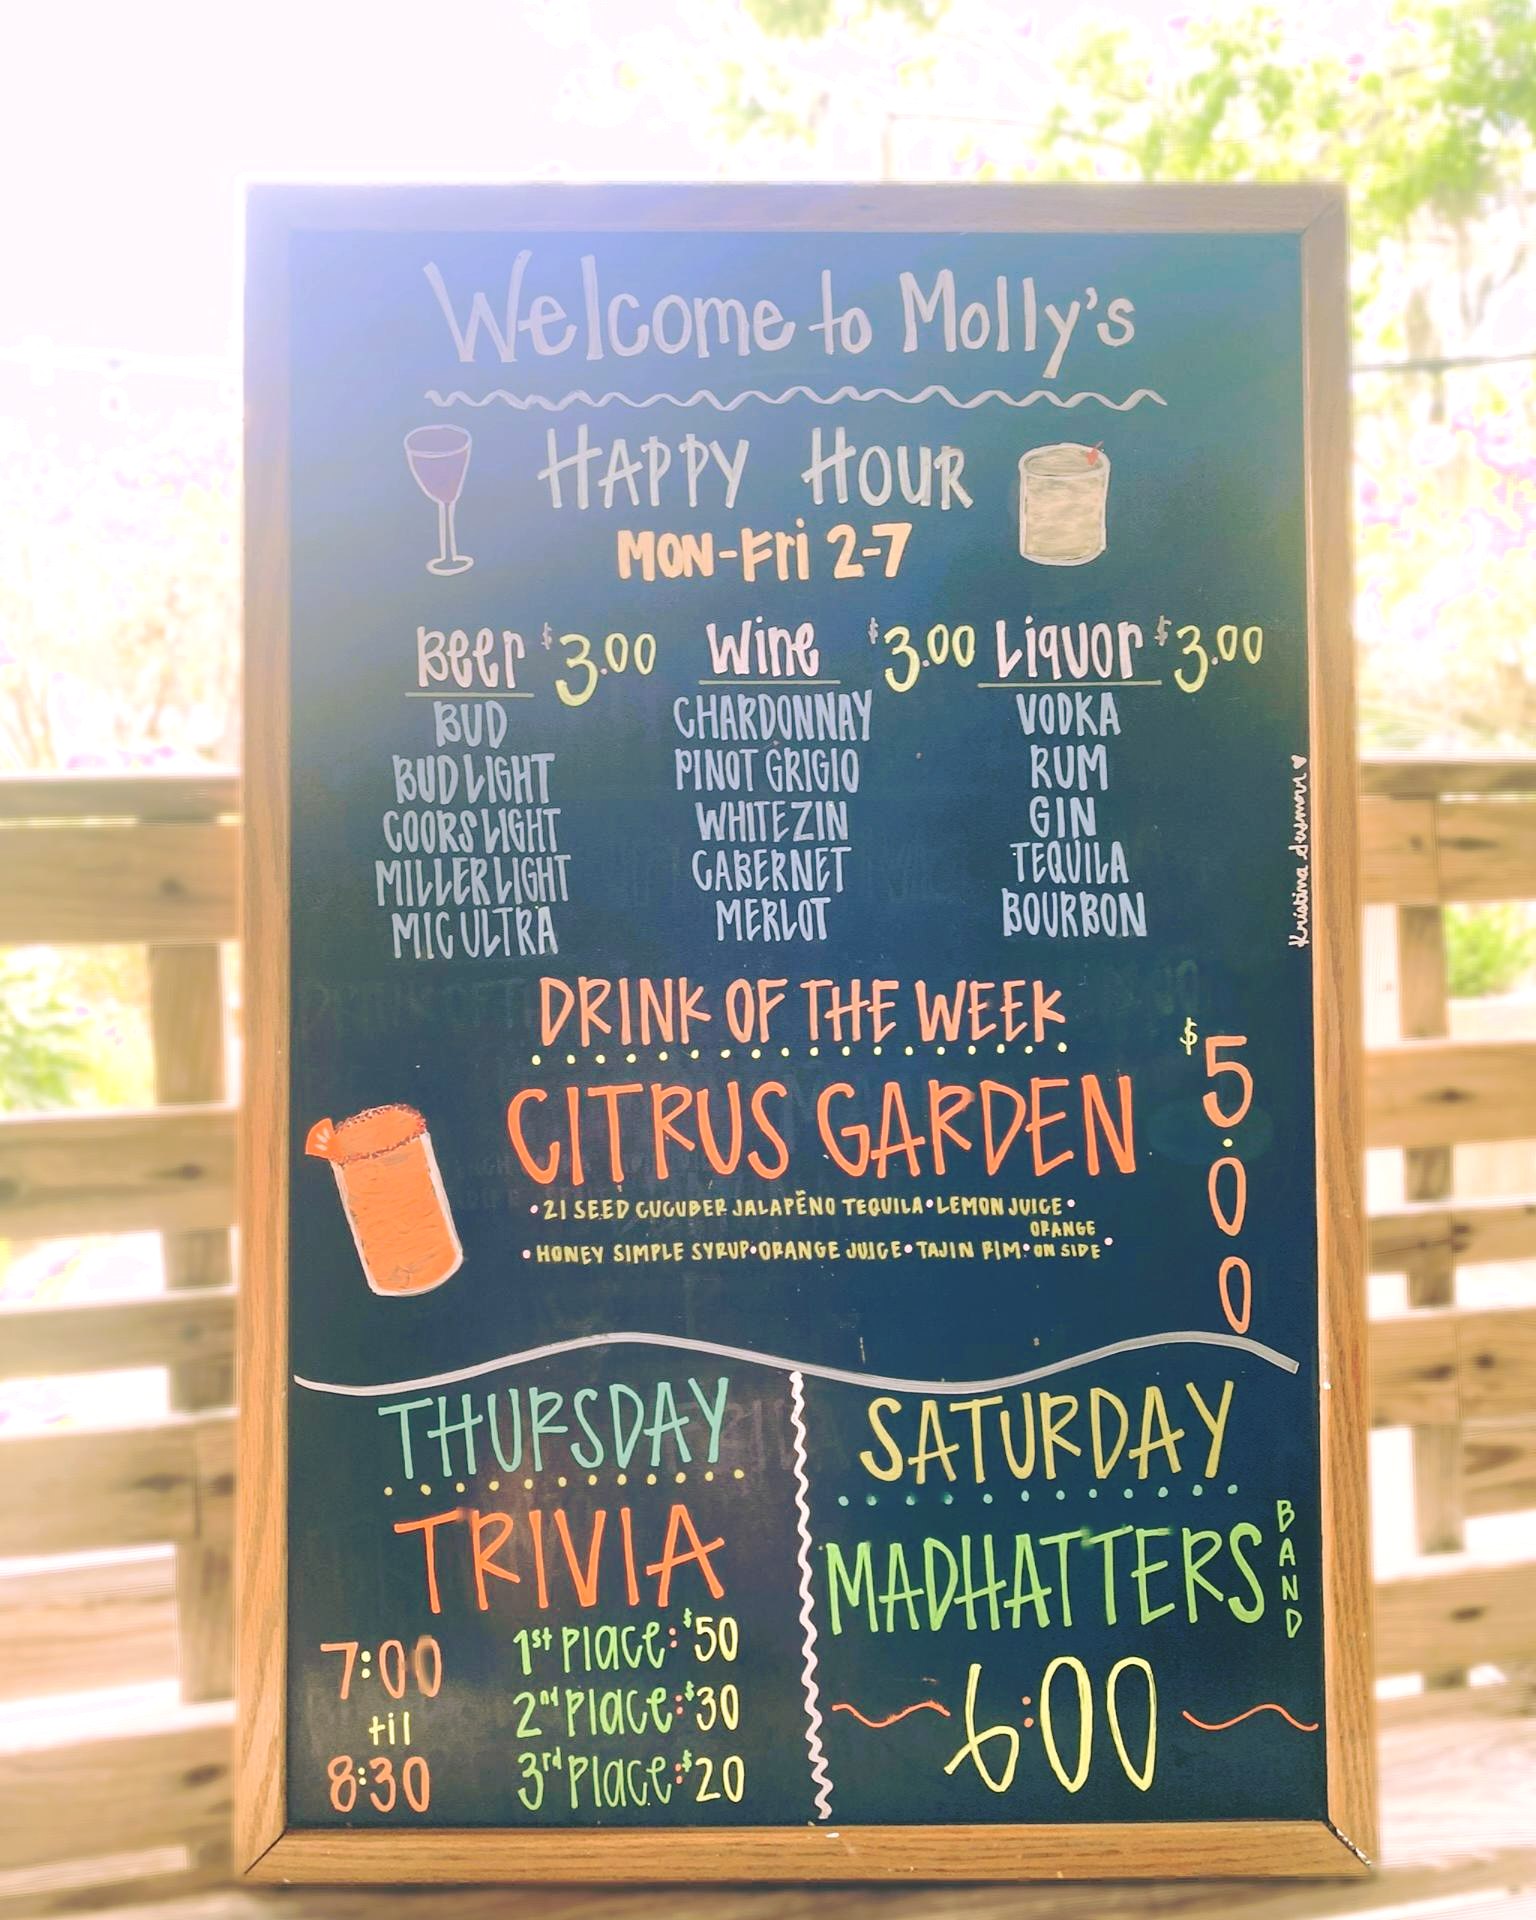 Welcome to Molly's
HAPPY HOUR
MON-Fri 2-7
Beer $3.00
BUD
BUD LIGHT
COORS LIGHT
MILLER LIGHT
MIC ULTRA
Wine $3.00
CHARDONNAY
PINOT GRIGIO
WHITE ZIN
CABERNET
MERLOT
Liquor $3.00
VODKA
RUM
GIN
TEQUILA
BOURBON
Kristina
DRINK OF THE WEEK
CITRUS GARDEN
$5.00
•21 SEED CUCUBER JALAPEÑO TEQUILA•LEMON JUICE•
•HONEY SIMPLE SYRUP•ORANGE JUICE•TAJIN RIM•ORANGE ON SIDE•
THURSDAY
TRIVIA
7:00
til
8:30
1st Place: $50
2nd Place: $30
3rd Place: $20
SATURDAY
MADHATTERS BAND
6:00